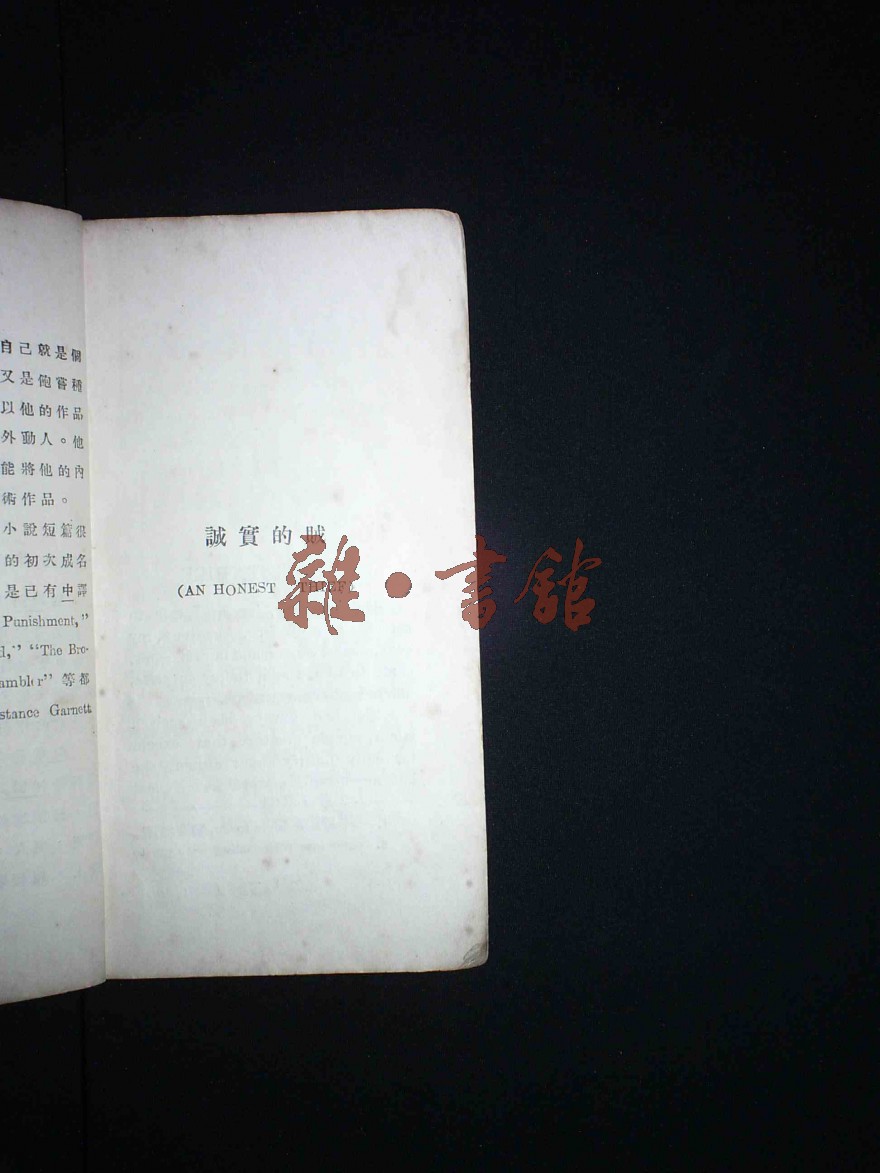 自己就是個
又是飽嘗種
以他的作品
外動人。他
能將他的內
術作品。
小說短篇很
的初次成名
是已有中譯
Punishment,”
“The Bro-
等都
Garnett
誠實的賊
(AN HONEST THIEF)
雜·書館